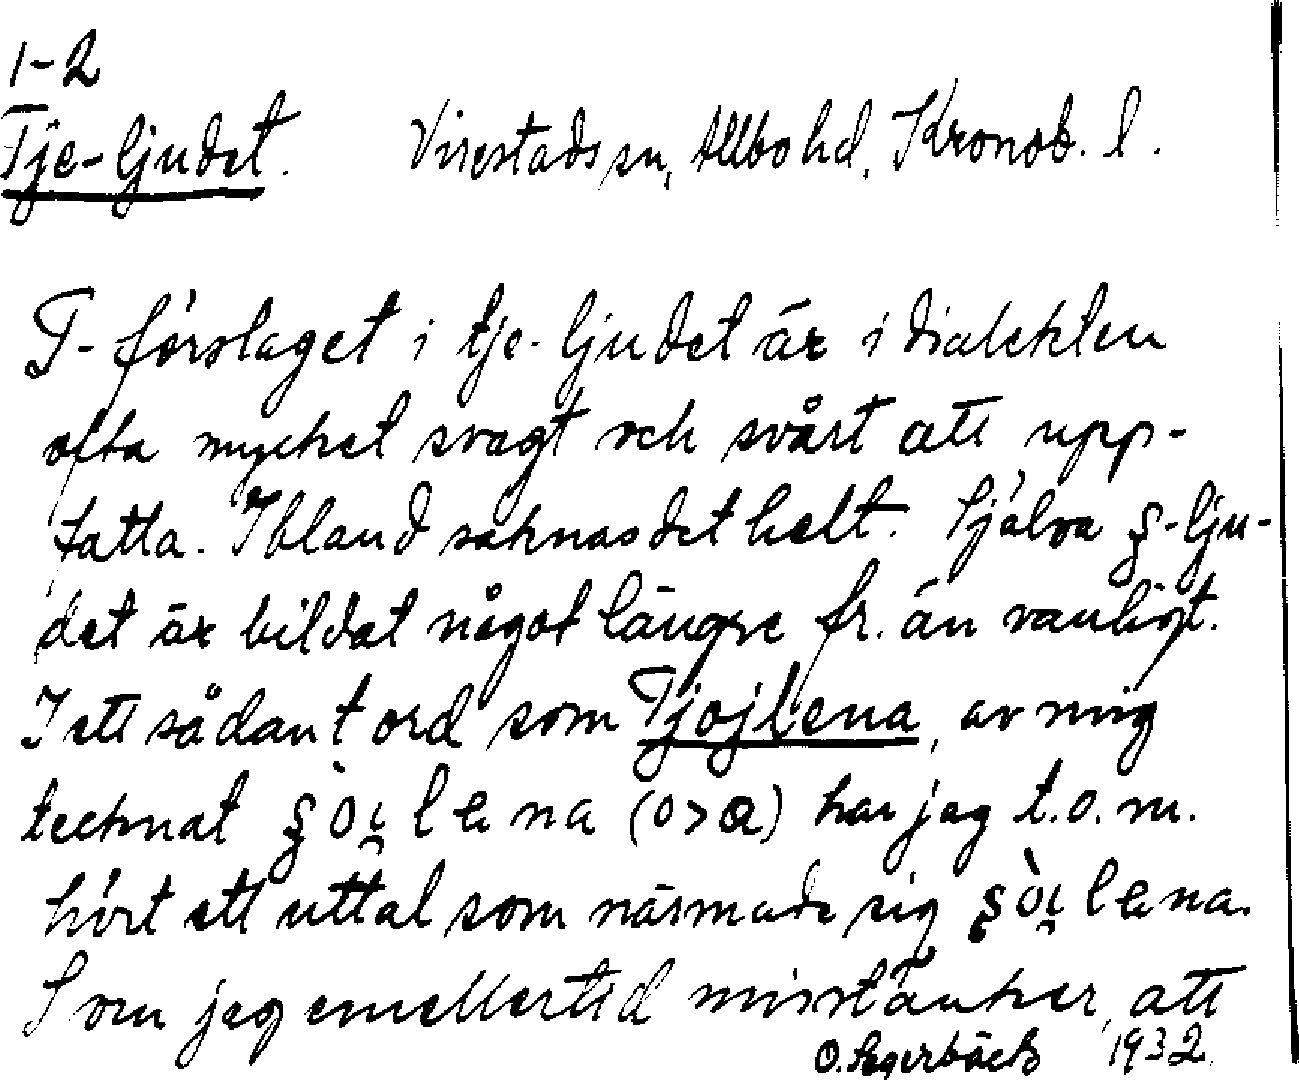 1-2
Tje-ljudet. Virestads sn, Allbo hd, Kronob. l.
T-förslaget i tje-ljudet är i dialekten
ofta mycket svagt och svårt att upp-
fatta. Ibland saknas det helt. Själva ʂ-lju-
det är bildat något längre fr. än vanligt.
I ett sådant ord som Tjojlena, av mig
tecknat lena (o>a) har jag t.o.m.
hört ett uttal som närmade sig lena.
Som jag emellertid misstänker, att
O. Segerbäck 1932.